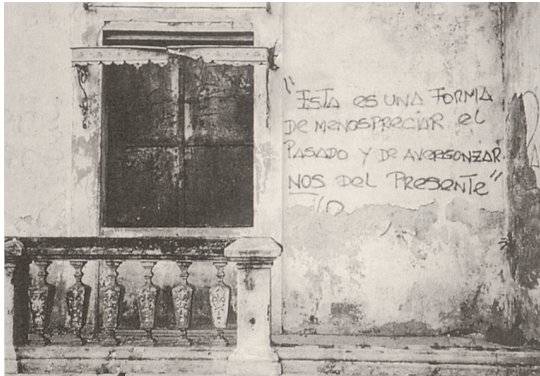 "ESTA ES UNA FORMA
DE MENOSPRECIAR EL
PASADO Y DE AVERGONZAR
NOS DEL PRESENTE"